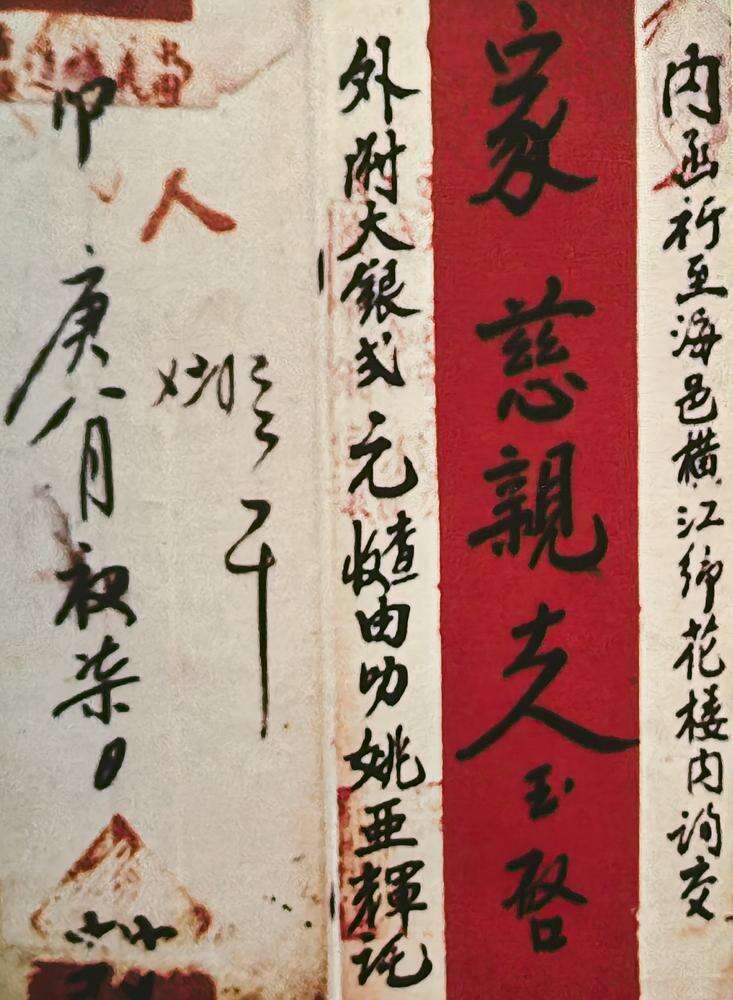 内函祈至海邑橫江鄉花樓内詢交
家慈親夫人玉啓
外附大銀弍元
查收由叻姚亞輝託
人
甲
庚八月初柒日